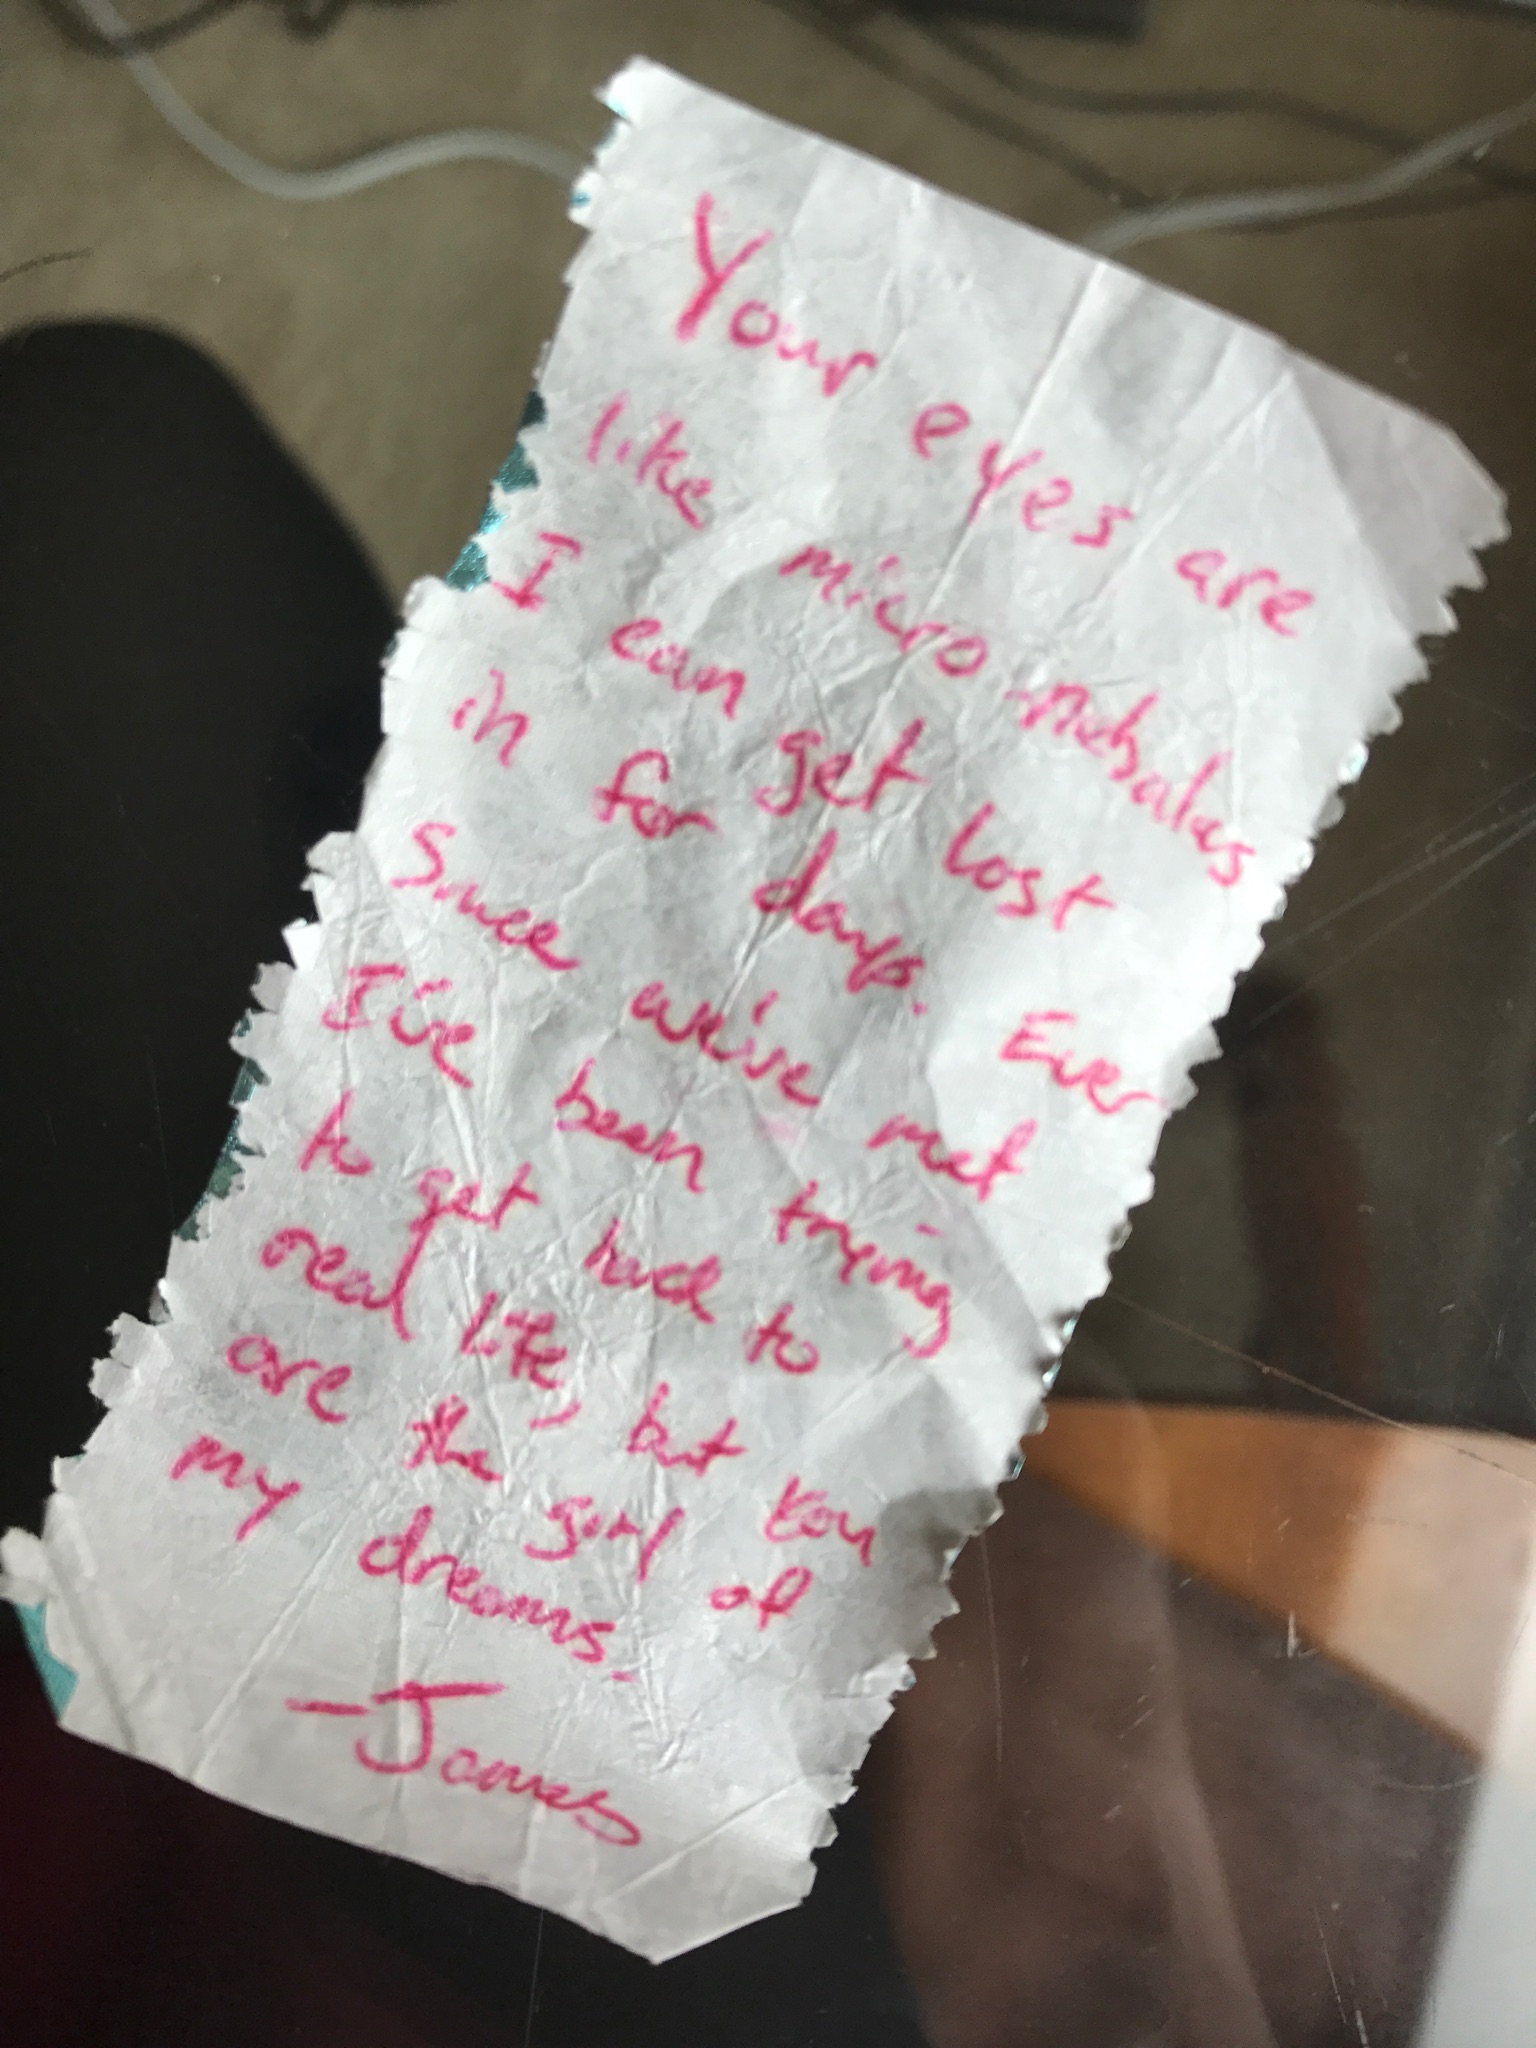 Your eyes are
like micro-nebulas
I can get lost
in for days. Ever
Since we've met
I've been trying
to get back to
real life, but you
are the girl of
my dreams.
-James